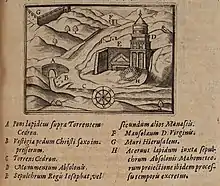 A Pons lapideus supra Torrentem
Cedron.
B Vestigia pedum Christi saxo im-
pressa.
C Torrens Cedron.
D Monumentum Absolonis.
E Sepulchrum Regis Iosaphat, vel
secundum alios Manassis.
F Mausolaum D. Virginis.
G Muri Hierusalem.
H Acervus lapidum iuxta sepul-
chrum Absolonis Mahometeo-
rum proiectione ibidem proces-
su temporis excretus.